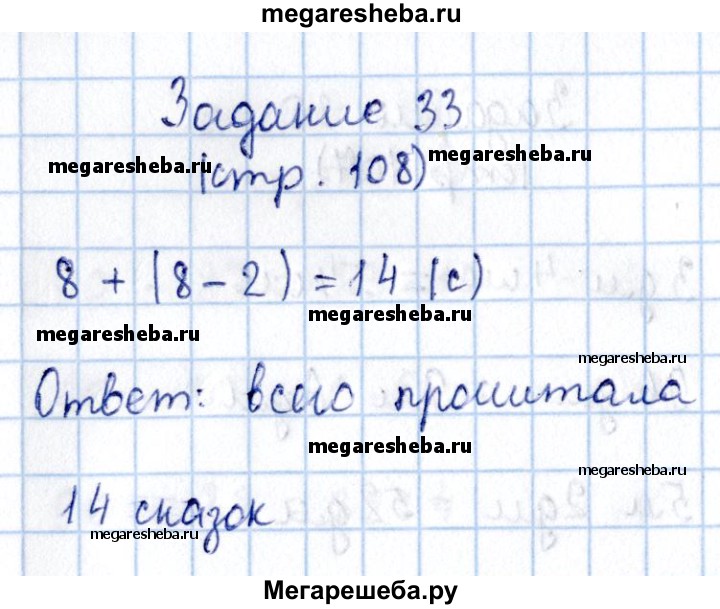 megaresheba.ru
Задание 33
megaresheba.ru
(стр. 108)
megaresheba.ru
8 + (8 - 2) = 14 (с)
megaresheba.ru
megaresheba.ru
megaresheba.ru
Ответ: всего прочитала
megaresheba.ru
megaresheba.ru
14 сказок
megaresheba.ru
megaresheba.ru
Мегарешеба.ру